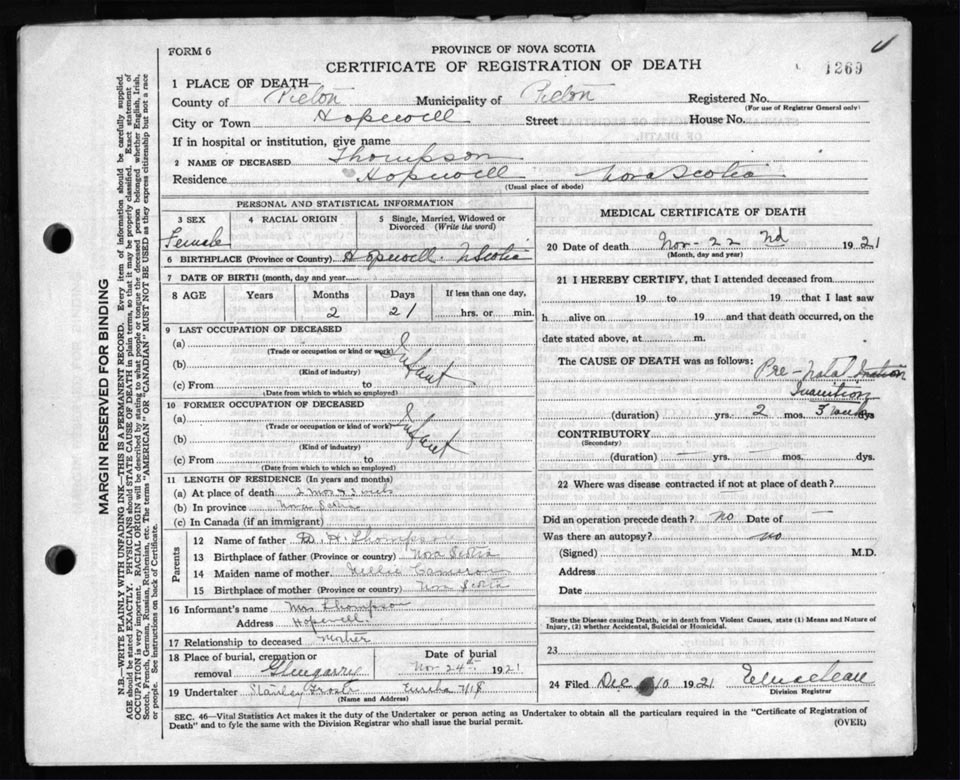 FORM 6
PROVINCE OF NOVA SCOTIA
CERTIFICATE OF REGISTRATION OF DEATH
1269
1 PLACE OF DEATH—
County of Pictou Municipality of Pictou Registered No.
(For use of Registrar General only)
City or Town Hopewell Street House No.
If in hospital or institution, give name
2 NAME OF DECEASED Thompson
Residence Hopewell Nova Scotia
(Usual place of abode)
PERSONAL AND STATISTICAL INFORMATION
3 SEX 4 RACIAL ORIGIN 5 Single, Married, Widowed or Divorced (Write the word)
Female
6 BIRTHPLACE (Province or Country) Hopewell N Scotia
7 DATE OF BIRTH (month, day and year)
8 AGE Years Months Days If less than one day,
2 21 hrs. or min.
9 LAST OCCUPATION OF DECEASED
(a) Infant
(Trade or occupation or kind of work)
(b)
(Kind of industry)
(c) From to
(Date from which to which so employed)
10 FORMER OCCUPATION OF DECEASED
(a) Infant
(Trade or occupation or kind of work)
(b)
(Kind of industry)
(c) From to
(Date from which to which so employed)
11 LENGTH OF RESIDENCE (In years and months)
(a) At place of death 2 mos 3
(b) In province Nova Scotia
(c) In Canada (if an immigrant)
Parents
12 Name of father D. H. Thompson
13 Birthplace of father (Province or country) Nova Scotia
14 Maiden name of mother Nellie Cameron
15 Birthplace of mother (Province or country) Nova Scotia
16 Informant's name Mrs Thompson
Address Hopewell
17 Relationship to deceased Mother
18 Place of burial, cremation or removal Glengarry Date of burial
Nov 24th 1921
19 Undertaker Stanley Eureka N S
(Name and Address)
MEDICAL CERTIFICATE OF DEATH
20 Date of death Nov - 22 nd 1921
(Month, day and year)
21 I HEREBY CERTIFY, that I attended deceased from
19 to 19 that I last saw
h alive on 19 and that death occurred, on the
date stated above, at m.
The CAUSE OF DEATH was as follows:
Pre-natal Inanition
Inanition
(duration) yrs. 2 mos. 3 weeks dys
CONTRIBUTORY
(Secondary)
(duration) — yrs. — mos. dys.
22 Where was disease contracted if not at place of death?
Did an operation precede death? no Date of —
Was there an autopsy? no
(Signed) M.D.
Address
Date
State the Disease causing Death, or in death from Violent Causes, state (1) Means and Nature of
Injury, (2) whether Accidental, Suicidal or Homicidal.
23
24 Filed Dec 10 1921
Division Registrar
SEC. 46—Vital Statistics Act makes it the duty of the Undertaker or person acting as Undertaker to obtain all the particulars required in the "Certificate of Registration of
Death" and to fyle the same with the Division Registrar who shall issue the burial permit.
(OVER)
MARGIN RESERVED FOR BINDING
N.B.—WRITE PLAINLY WITH UNFADING INK—THIS IS A PERMANENT RECORD. Every item of information should be carefully supplied.
AGE should be stated EXACTLY. PHYSICIANS should STATE CAUSE OF DEATH in plain terms, so that it may be properly classified. Exact statement of
OCCUPATION is very important. RACIAL ORIGIN will be described by stating to what people or tongue the deceased person belonged, whether English, Irish,
Scotch, French, German, Russian, Ruthenian, etc. The terms "AMERICAN" or "CANADIAN" MUST NOT BE USED as they express citizenship but not a race
or people. See instructions on back of Certificate.